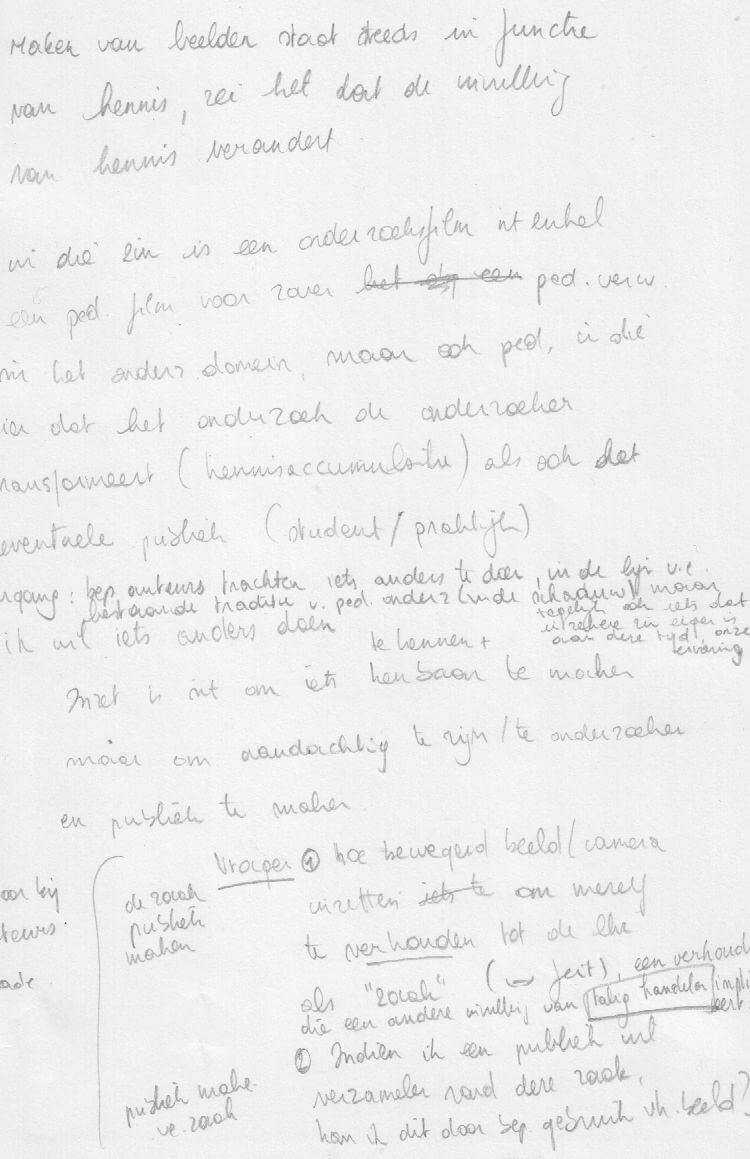 Maken van beelden staat steeds in functie
van kennis, zei het dat de invulling
van kennis verandert
in die zin is een onderzoeksfilm nt enkel
een ped. film voor zover het een ped. verw.
in het onderz. domein, maar ook ped, in die
zin dat het onderzoek de onderzoeker
transformeert (kennisaccumulatie) als ook dat
eventuele publiek (student/praktijk)
: bep auteurs trachten iets anders te doen, in de lijn v.e.
bestaande traditie v. ped. onderz (in de schaduw) maar
tegelijk ook iets dat
ik wil iets anders doen
eigen is
aan deze tijd, onze
ervaring
te kennen +
Inzet is nt om iets kenbaar te maken
maar om aandachtig te zijn / te onderzoeken
en publiek te maken
Vragen ① hoe bewegend beeld/camera
de zaak
publiek
maken
inzetten iets te om mezelf
te verhouden tot de
als "zaak" ( feit), een verhoud
die een andere invulling van talig handelen impli
eert
② Indien ik een publiek wil
verzamelen rond deze zaak,
publiek make
ve. zaak
kan ik dit door bep. gebruik vh. beeld?